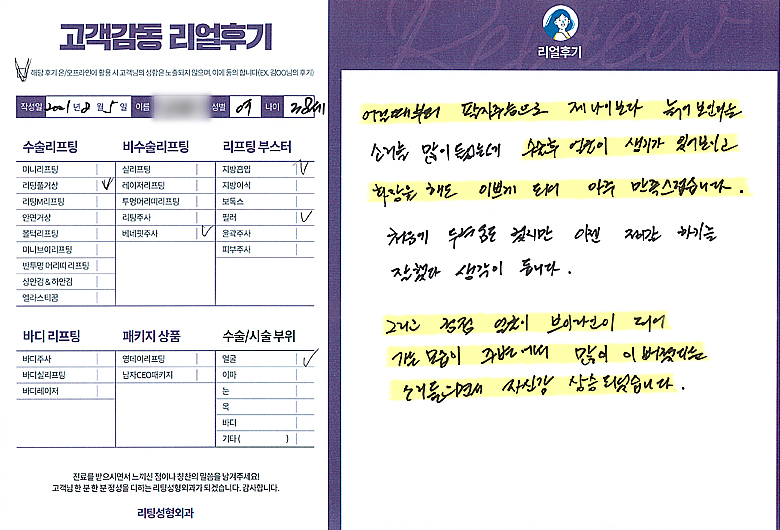 고객감동 리얼후기
해당 후기 온/오프라인이 활용 시 고객님의 성함은 노출되지 않으며, 이에 동의 합니다(EX. 김OO님의 후기)
작성일 2021년 8월 5일 이름 성별 여 나이 38세
수술리프팅
미니리프팅
리팅풀거상
리팅M리프팅
안면거상
볼턱리프팅
미니브이리프팅
반투명 머리띠 리프팅
상안검 & 하안검
엘라스티꿈
비수술리프팅
실리프팅
레이저리프팅
투명머리띠리프팅
리팅주사
베네핏주사
리프팅 부스터
지방흡입
지방이식
보톡스
필러
윤곽주사
피부주사
바디 리프팅
바디주사
바디실리프팅
바디레이저
패키지 상품
영데이리프팅
남자CEO패키지
수술/시술 부위
얼굴
이마
눈
목
바디
기타 ( )
진료를 받으시면서 느끼신 점이나 칭찬의 말씀을 남겨주세요!
고객님 한 분 한 분 정성을 다하는 리팅성형외과가 되겠습니다. 감사합니다.
리팅성형외과
Review
리얼후기
어릴때부터 팔자주름으로 제 나이보다 늙어 보인다는
소리를 많이 들었는데 수술후 얼굴이 생기가 있어보이고
화장을 해도 이쁘게 되어 아주 만족스럽습니다.
처음엔 두려움도 컸지만 이젠 저희간 하기를
잘했다 생각이 듭니다.
그리고 걱정 없이 브이라인이 되어
가는 모습이 주변에서 많이 이뻐졌다는
소리들으면서 자신감 상승 되었습니다.